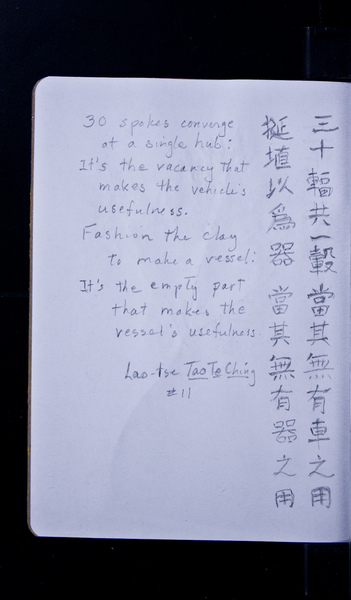 30 spokes converge
at a single hub:
It's the vacancy that
makes the vehicle's
usefulness.
Fashion the clay
to make a vessel:
It's the empty part
that makes the
vessel's usefulness.
Lao-tse Tao Te Ching
#11
三十輻共一轂當其無有車之用
挻埴以為器當其無有器之用